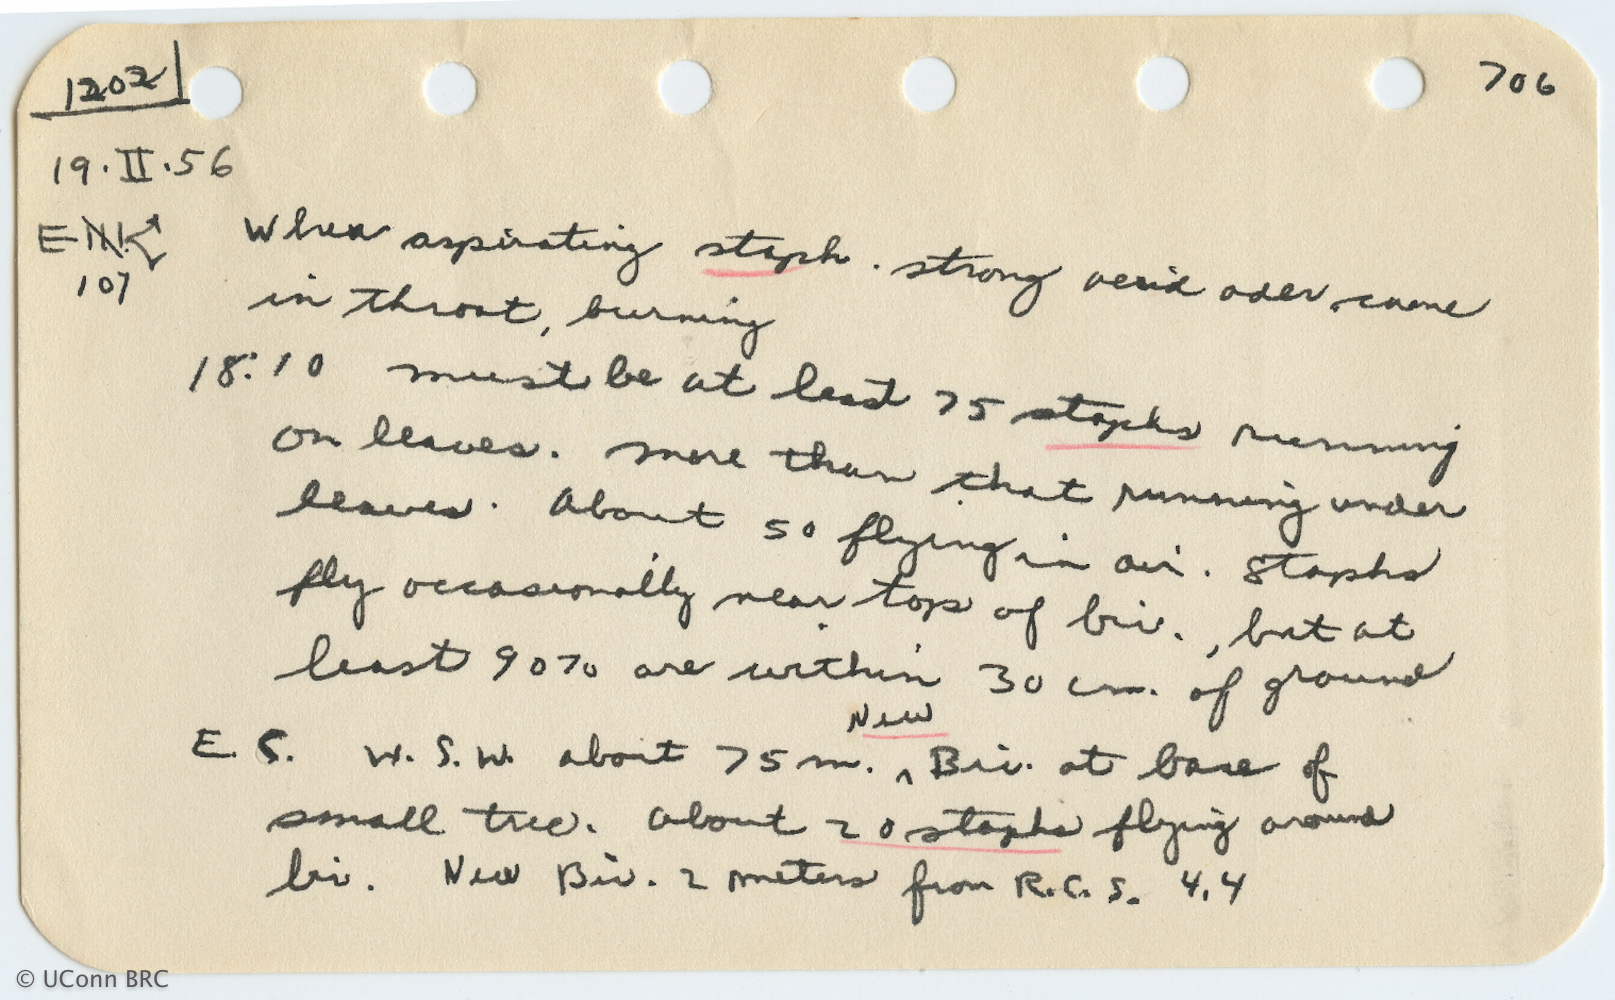 1202
706
19.II.56
107
When aspirating staph. strong acrid oder came
in throat, burning
18:10 must be at least 75 staphs running
on leaves. more than that running under
leaves. About 50 flying in air. Staphs
fly occasionally near top of biv., but at
least 90% are within 30 cm. of ground
New
E. S. W.S.W. about 75 m. ^ Biv. at base of
small tree. About 20 staphs flying around
biv. New Biv. 2 meters from R.C.S. 4.4
© UConn BRC